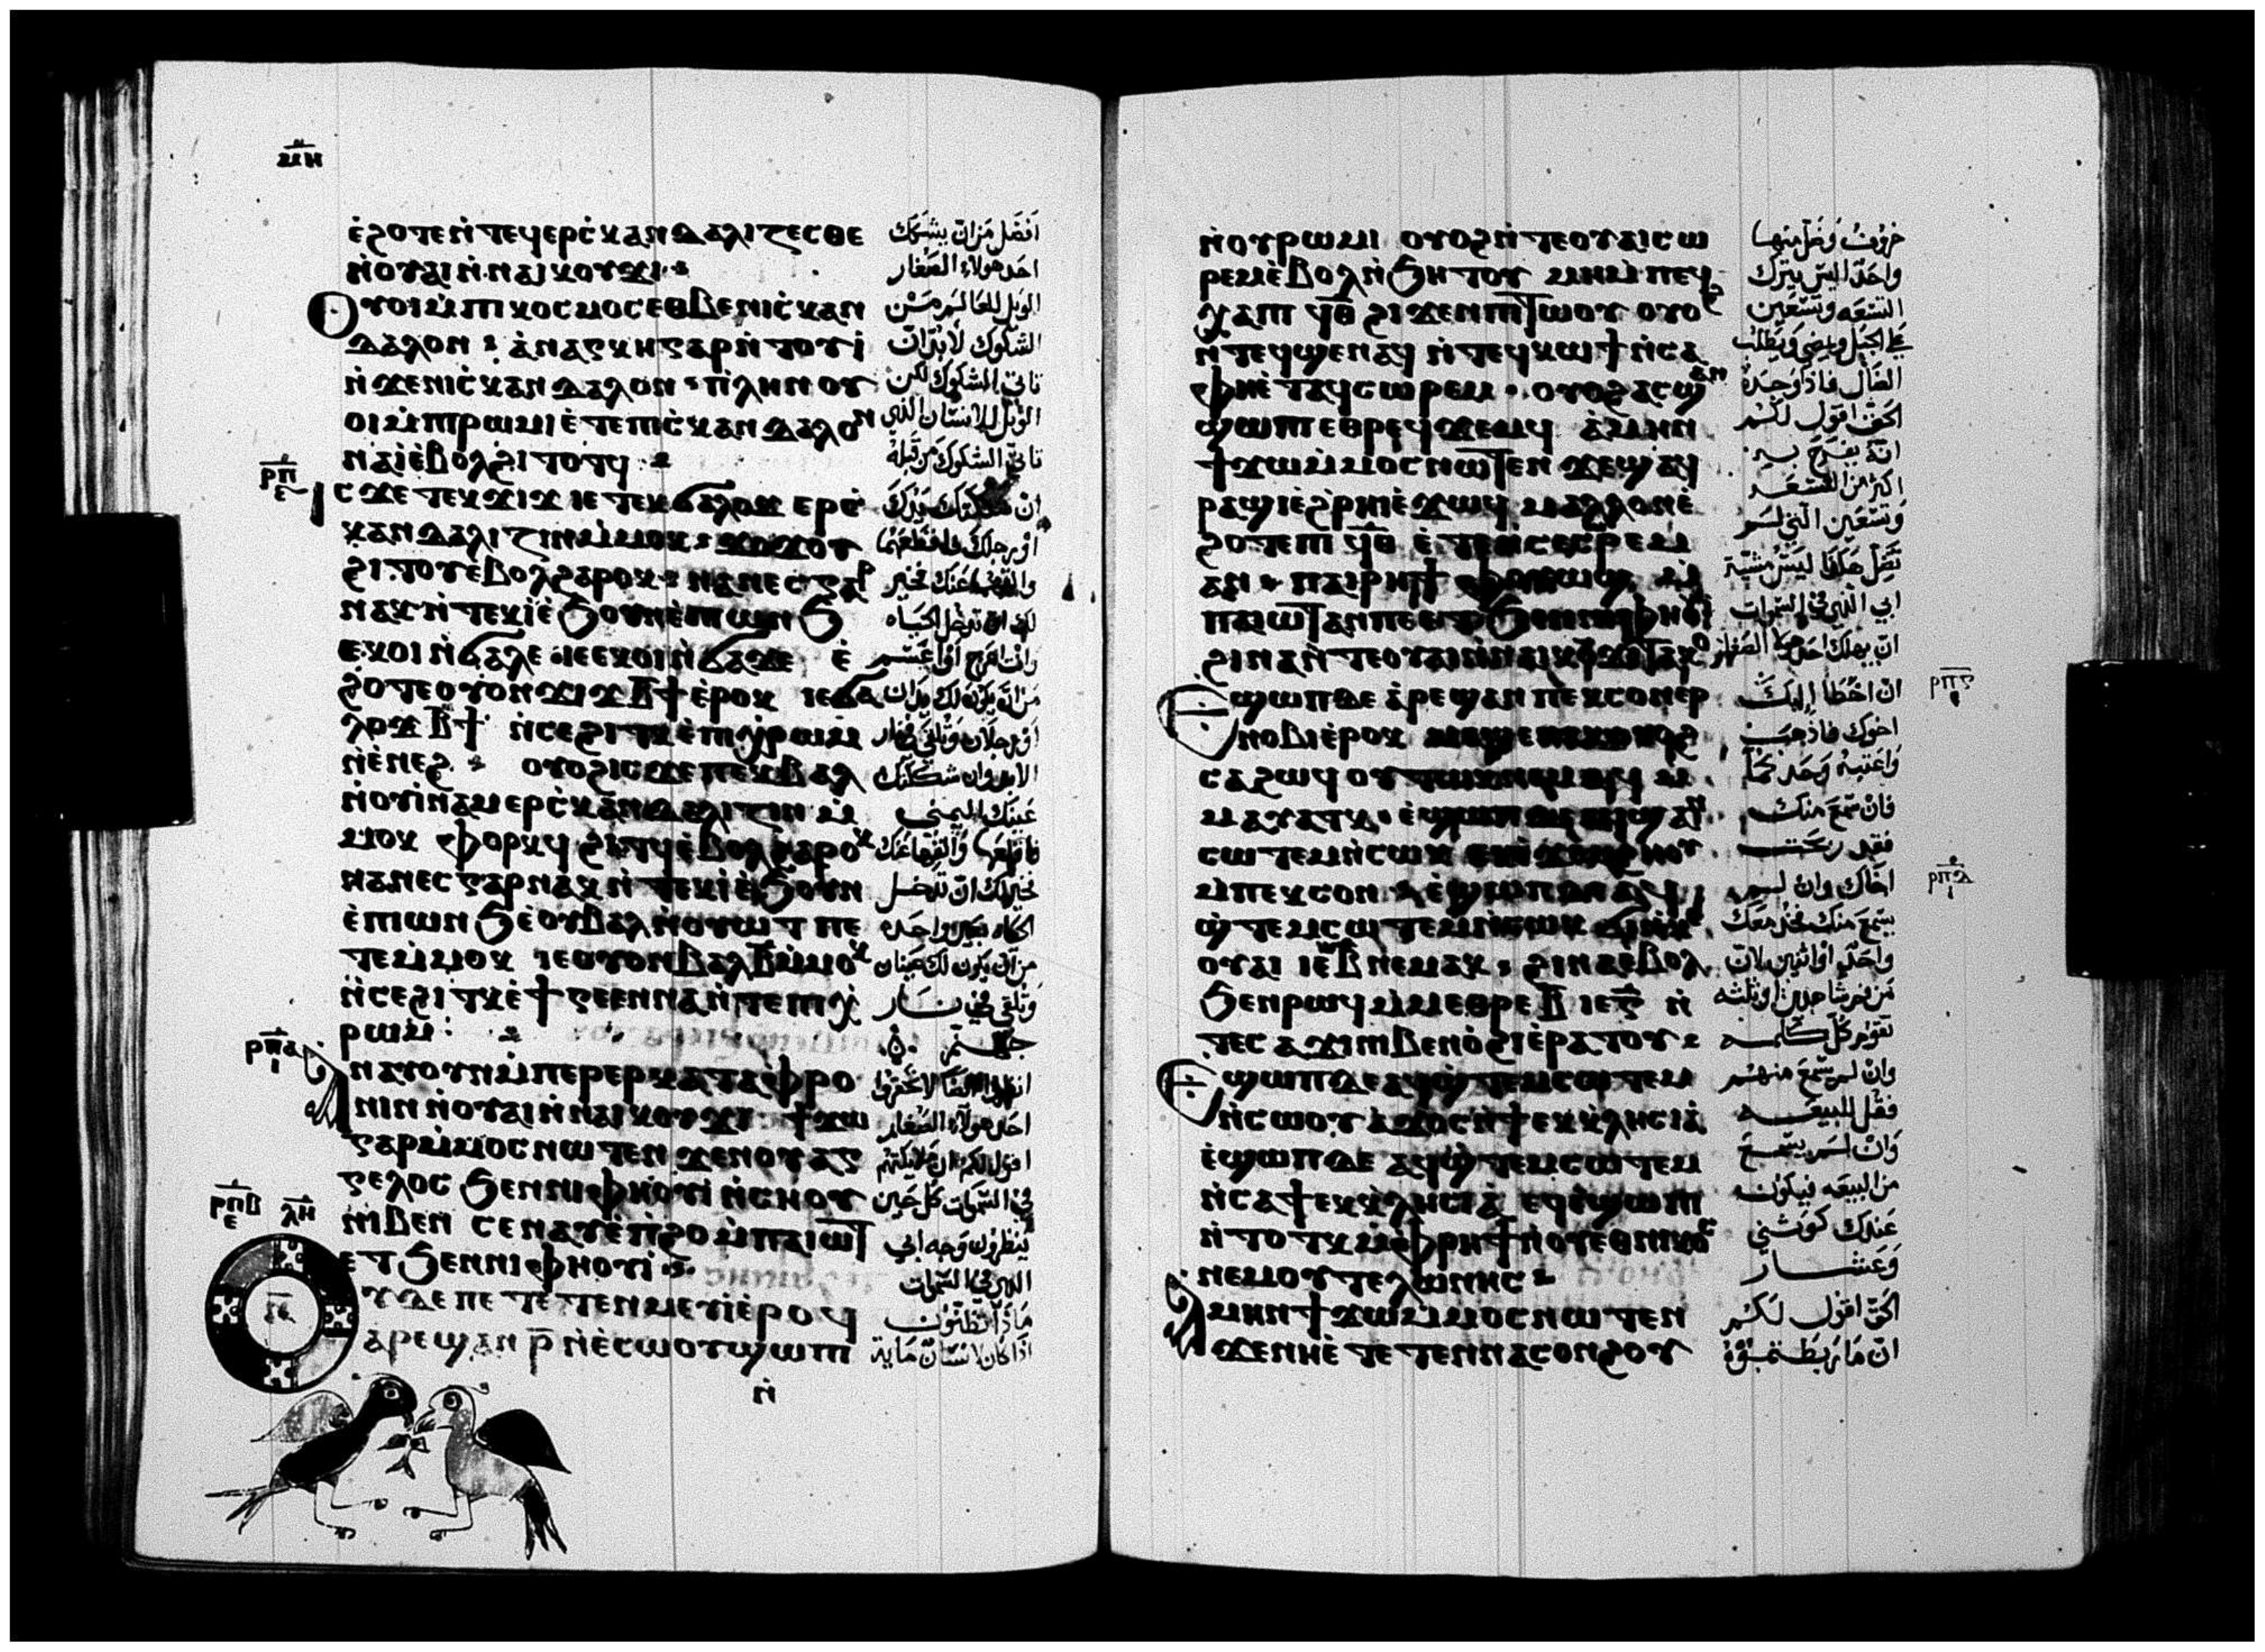 ⲙ̅ⲏ̅
ⲉ̀ϩⲟⲧⲉ ⲛ̀ⲧⲉϥⲉⲣⲥ̀ⲕⲁⲛⲇⲁⲗⲓⲍⲉⲥⲑⲉ
ⲛ̀ⲟⲩⲁⲓ ⲛ̀ⲛⲁⲓⲕⲟⲩϫⲓ
ⲟⲩⲟⲓ ⲙ̀ⲡⲓⲕⲟⲥⲙⲟⲥ ⲉⲑⲃⲉ ⲛⲓⲥ̀ⲕⲁⲛ
ⲇⲁⲗⲟⲛ ⲁ̀ⲛⲁⲅⲕⲏ ⲅⲁⲣ ⲛ̀ⲧⲟⲩⲓ̀
ⲛ̀ϫⲉⲛⲓⲥ̀ⲕⲁⲛⲇⲁⲗⲟⲛ ⲡⲗⲏⲛ ⲟⲩ
ⲟⲓ ⲙ̀ⲡⲓⲣⲱⲙⲓ ⲉ̀ⲧⲉ ⲡⲓⲥ̀ⲕⲁⲛⲇⲁⲗⲟⲛ
ⲛⲁⲓ̀ ⲉ̀ⲃⲟⲗϩⲓⲧⲟⲧϥ
ⲣ̅ⲡ̅ ⲉ
ⲓⲥϫⲉ ⲧⲉⲕϫⲓϫ ⲓⲉ ⲧⲉⲕϭⲁⲗⲟϫ ⲉⲣⲥ̀
ⲕⲁⲛⲇⲁⲗⲓⲍⲓⲛ ⲙ̀ⲙⲟⲕ ϫⲟϫⲟⲩ
ϩⲓⲧⲟⲩ ⲉⲃⲟⲗ ϩⲁⲣⲟⲕ ⲛⲁⲛⲉⲥ ⲅⲁⲣ
ⲛⲁⲕ ⲛ̀ⲧⲉⲕⲓ̀ ⲉ̀ϧⲟⲩⲛ ⲉ̀ⲡⲱⲛϧ
ⲉⲕⲟⲓ ⲛ̀ϭⲁⲗⲉ ⲓⲉ ⲉⲕⲟⲓ ⲛ̀ϭⲁϫⲉ ⲉ̀
ϩⲟⲧⲉ ⲟⲩⲟⲛ ϫⲓϫ ⲃ̅ϯ ⲉ̀ⲣⲟⲕ ⲓⲉ ϭⲁ
ⲗⲟϫ ⲃ̅ϯ ⲛ̀ⲥⲉϩⲓⲧⲕ ⲉ̀ⲡⲓⲭ̀ⲣⲱⲙ
ⲛ̀ⲉ̀ⲛⲉϩ ⲟⲩⲟϩ ⲓⲥϫⲉ ⲡⲉⲕⲃⲁⲗ
ⲛ̀ⲟⲩⲓ̀ⲛⲁⲙ ⲉⲣⲥ̀ⲕⲁⲛⲇⲁⲗⲓⲍⲓⲛ ⲙ̀
ⲙⲟⲕ ⲫⲟⲣⲕϥ ϩⲓⲧϥ ⲉ̀ⲃⲟⲗ ϩⲁⲣⲟⲕ
ⲛⲁⲛⲉⲥ ⲅⲁⲣ ⲛⲁⲕ ⲛ̀ⲧⲉⲕⲓ̀ ⲉ̀ϧⲟⲩⲛ
ⲉ̀ⲡⲱⲛϧ ⲉ̀ⲟⲩⲃⲁⲗ ⲛ̀ⲟⲩⲱⲧ ⲡⲉ
ⲧⲉⲙ̀ⲙⲟⲕ ⲓⲉ ⲟⲩⲟⲛ ⲃⲁⲗ ⲃ̅ ⲙ̀ⲙⲟⲕ
ⲛ̀ⲥⲉϩⲓⲧⲕ ⲉ̀ϯⲅⲉⲉⲛⲛⲁ ⲛ̀ⲧⲉ ⲡⲓⲭ̀
ⲣⲱⲙ
ⲣ̅ⲡ̅ⲁ̅ ⲓ
ⲁⲛⲁⲩ ⲟⲩⲛ ⲙ̀ⲡⲉⲣⲉⲣⲕⲁⲧⲁⲫⲣⲟ
ⲛⲓⲛ ⲛ̀ⲟⲩⲁⲓ ⲛ̀ⲛⲁⲓⲕⲟⲩϫⲓ ϯϫⲱ
ⲅⲁⲣ ⲙ̀ⲙⲟⲥ ⲛⲱⲧⲉⲛ ϫⲉ ⲛⲟⲩⲁⲅ
ⲅⲉⲗⲟⲥ ϧⲉⲛ ⲛⲓⲫⲏⲟⲩⲓ̀ ⲛ̀ⲥⲏⲟⲩ
ⲛⲓⲃⲉⲛ ⲥⲉⲛⲁⲩ ⲉ̀ⲡ̀ϩⲟ ⲙ̀ⲡⲁⲓⲱⲧ
ⲉⲧϧⲉⲛ ⲛⲓⲫⲏⲟⲩⲓ̀
ⲣ̅ⲡ̅ⲃ̅ ⲉ ⲗ̅ⲏ̅
ⲟⲩ ⲇⲉ ⲡⲉⲧⲉⲧⲉⲛⲙⲉⲩⲓ̀ ⲉ̀ⲣⲟϥ
ⲁⲣⲉϣⲁⲛ ⲣ̅ ⲛ̀ⲉ̀ⲥⲱⲟⲩ ϣⲱⲡⲓ
ⲛ̀
افضل من ان يشكك
احد هولاء الصغار
الويل للعالم من
الشكوك لا بد ان
تاتي الشكوك لكن
الويل للانسان الذي
تاتي الشكوك من قبله
او رجلك فاقطعهما
والقهما عنك فخير
لك ان تدخل الحياه
وانت اعرج او اعسم
من ان يكون لك يدان
او رجلان وتلقى في نار
الابد وان شككتك
عينك اليمنى
فاقلعها والقها عنك
فخير لك ان تدخل
الحياه بعين واحده
من ان يكون لك عينان
وتلقى في نار
جهنم
انظروا لا تحقروا
احد هولاء الصغار
اقول لكم ان ملايكتهم
في السموات كل حين
ينظرون وجه ابي
الذي في السموات
ماذا تظنون
اذا كان لانسان مايه
ⲛ̀ⲟⲩⲣⲱⲙⲓ ⲟⲩⲟϩ ⲛ̀ⲧⲉ ⲟⲩⲁⲓ ⲥⲱ
ⲣⲉⲙ ⲉ̀ⲃⲟⲗ ⲛ̀ϧⲏⲧⲟⲩ ⲙⲏ ⲙ̀ⲡⲉϥ
ⲭⲁ ⲡⲓ ϥ̅ⲑ̅ ϩⲓϫⲉⲛ ⲡⲓⲧⲱⲟⲩ ⲟⲩⲟϩ
ⲛ̀ⲧⲉϥϣⲉⲛⲁϥ ⲛ̀ⲧⲉϥⲕⲱϯ ⲛ̀ⲥⲁ
ⲫⲏⲉ̀ⲧⲁϥⲥⲱⲣⲉⲙ ⲟⲩⲟϩ ⲁⲥϣⲁⲛ
ϣⲱⲡⲓ ⲉⲑⲣⲉϥϫⲉⲙϥ ⲁ̀ⲙⲏⲛ
ϯϫⲱ ⲙ̀ⲙⲟⲥ ⲛⲱⲧⲉⲛ ϫⲉ ϣⲁϥ
ⲣⲁϣⲓ ⲉ̀ϩ̀ⲣⲏⲓ ⲉ̀ϫⲱϥ ⲙⲁⲗⲗⲟⲛ ⲉ̀
ϩⲟⲧⲉ ⲡⲓ ϥ̅ⲑ̅ ⲉ̀ⲧⲉⲙ̀ⲡⲟⲩⲥⲱⲣⲉⲙ
ⲡⲁⲓⲣⲏϯ ⲫⲟⲩⲱϣ ⲙ̀
ⲡⲁⲓⲱⲧ ⲁⲛ ⲡⲉ ⲉⲧϧⲉⲛ ⲛⲓⲫⲏⲟⲩⲓ̀
ϩⲓⲛⲁ ⲛ̀ⲧⲉ ⲟⲩⲁⲓ ⲛ̀ⲛⲁⲓⲕⲟⲩϫⲓ ⲧⲁⲕⲟ
ⲉϣⲱⲡ ⲇⲉ ⲁ̀ⲣⲉϣⲁⲛ ⲡⲉⲕⲥⲟⲛ ⲉⲣ
ⲛⲟⲃⲓ ⲉ̀ⲣⲟⲕ
ⲥⲁϩⲱϥ ⲟⲩⲧⲱⲕ ⲛⲉⲙⲁϥ ⲙ̀
ⲙⲁⲩⲁⲧⲕ ⲉ̀ϣⲱⲡ ⲁϥϣⲁⲛ
ⲥⲱⲧⲉⲙ ⲛ̀ⲥⲱⲕ
ⲙ̀ⲡⲉⲕⲥⲟⲛ ⲉ̀ϣⲱⲡ ⲇⲉ ⲁϥ
ϣ̀ⲧⲉⲙⲥⲱⲧⲉⲙ ⲛ̀ⲥⲱⲕ
ⲟⲩⲁⲓ ⲓⲉ ⲃ̅ ⲛⲉⲙⲁⲕ ϩⲓⲛⲁ ⲉⲃⲟⲗ
ϧⲉⲛ ⲣⲱϥ ⲙ̀ⲙⲉⲑⲣⲉ ⲃ̅ ⲓⲉ ⲅ̅ ⲛ̀
ⲧⲉ ⲥⲁϫⲓ ⲛⲓⲃⲉⲛ ⲟ̀ϩⲓ ⲉ̀ⲣⲁⲧⲟⲩ
ⲉϣⲱⲡ ⲇⲉ ⲁϥϣ̀ⲧⲉⲙⲥⲱⲧⲉⲙ
ⲛ̀ⲥⲱⲟⲩ ⲁ̀ϫⲟⲥ ⲛ̀ϯⲉⲕⲕⲗⲏⲥⲓⲁ̀
ⲉ̀ϣⲱⲡ ⲇⲉ ⲁϥϣ̀ⲧⲉⲙⲥⲱⲧⲉⲙ
ⲛ̀ⲥⲁ ϯⲉⲕⲕⲗⲏⲥⲓⲁ̀ ⲉϥⲉ̀ϣⲱⲡⲓ
ⲛ̀ⲧⲟⲧⲕ ⲙ̀ⲫⲣⲏϯ ⲛ̀ⲟⲩⲉⲑⲛⲓⲕⲟⲥ
ⲛⲉⲙ ⲟⲩⲧⲉⲗⲱⲛⲏⲥ
ⲁⲙⲏⲛ ϯϫⲱ ⲙ̀ⲙⲟⲥ ⲛⲱⲧⲉⲛ
ϫⲉ ⲛⲏⲉ̀ⲧⲉⲧⲉⲛⲛⲁⲥⲟⲛϩⲟⲩ
خروف وضل منها
واحد اليس يترك
التسعه وتسعين
على الجبل ويمضي ويطلب
الضال فاذا وجده
الحق اقول لكم
انه يفرح به
اكثر من التسعه
وتسعين التي لم
تضل هكذا ليس مشيّة
ابي الذي في السموات
ان يهلك احد هولاء الصغار
ان اخطا اليك
اخوك فاذهب
واعتبه وحدكما
فان سمع منك
فقد ربحت
اخاك وان لم
يسمع منك فخذ معك
واحد او اثنين لان
من فم شاهدين او ثلثه
تقوم كل كلمه
وان لم يسمع منهم
فقل للبيعه
وان لم يسمع
من البيعه فيكون
عندك كوثني
وعشار
الحق اقول لكم
ان ما ربطتموه